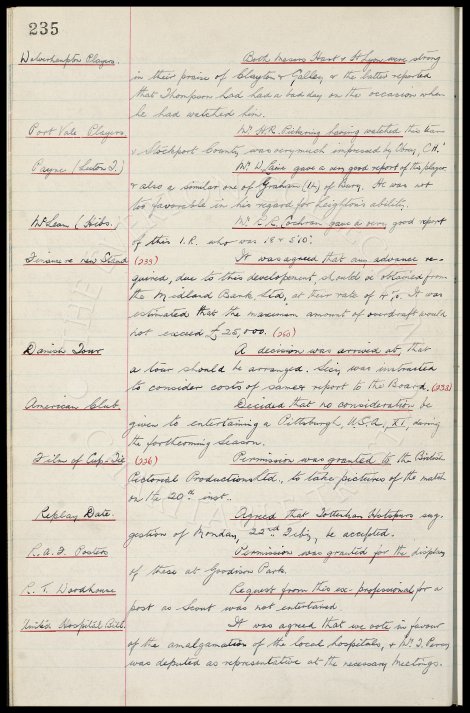 235
Wolverhampton Players. Both Messrs Hart & H. Lyon were strong
in their praise of Clayton & Galley, & the latter reported
that Thompson had had a bad day on the occasion when
he had watched him.
Port Vale Players. Mr H.R. Pickering having watched this team
v Stockport County was very much impressed by Obrey, C.H.
Payne (Luton T.) Mr W. gave a very good report of this player
& also a similar one of Graham (I.L) of Bury. He was not
too favorable in his regard for Leighton's ability.
McLean (Hibs.) Mr E. R. Cochran gave a very good report
of this I.R. who was 18 & 5'10".
Finance re new Stand (233) It was agreed that an advance re-
quired, due to this developement, should be obtained from
the Midland Bank Ltd, at their rate of 4%. It was
estimated that the maximum amount of overdraft would
not exceed £25,000. (250)
Danish Tour A decision was arrived at, that
a tour should be arranged. Secy, was instructed
to consider costs of same & report to the Board. (238)
American Club. Decided that no consideration be
given to entertaining a Pittsburgh, U.S.A., XI, during
the forthcoming season.
Film of Cup-Tie (236) Permission was granted to the British
Pictorial Productions Ltd., to take pictures of the match
on the 20th inst.
Replay Date. Agreed that Tottenham Hotspurs sug-
gestion of Monday, 22nd Feby, be accepted.
R.A.F. Posters Permission was granted for the display
of these at Goodison Park.
R. T. Woodhouse Request from this ex-professional for a
post as Scout was not entertained.
United Hospital Bill. It was agreed that we vote in favour
of the amalgamation of the local hospitals, & Mr. T.
was deputed as representative at the necessary meetings.